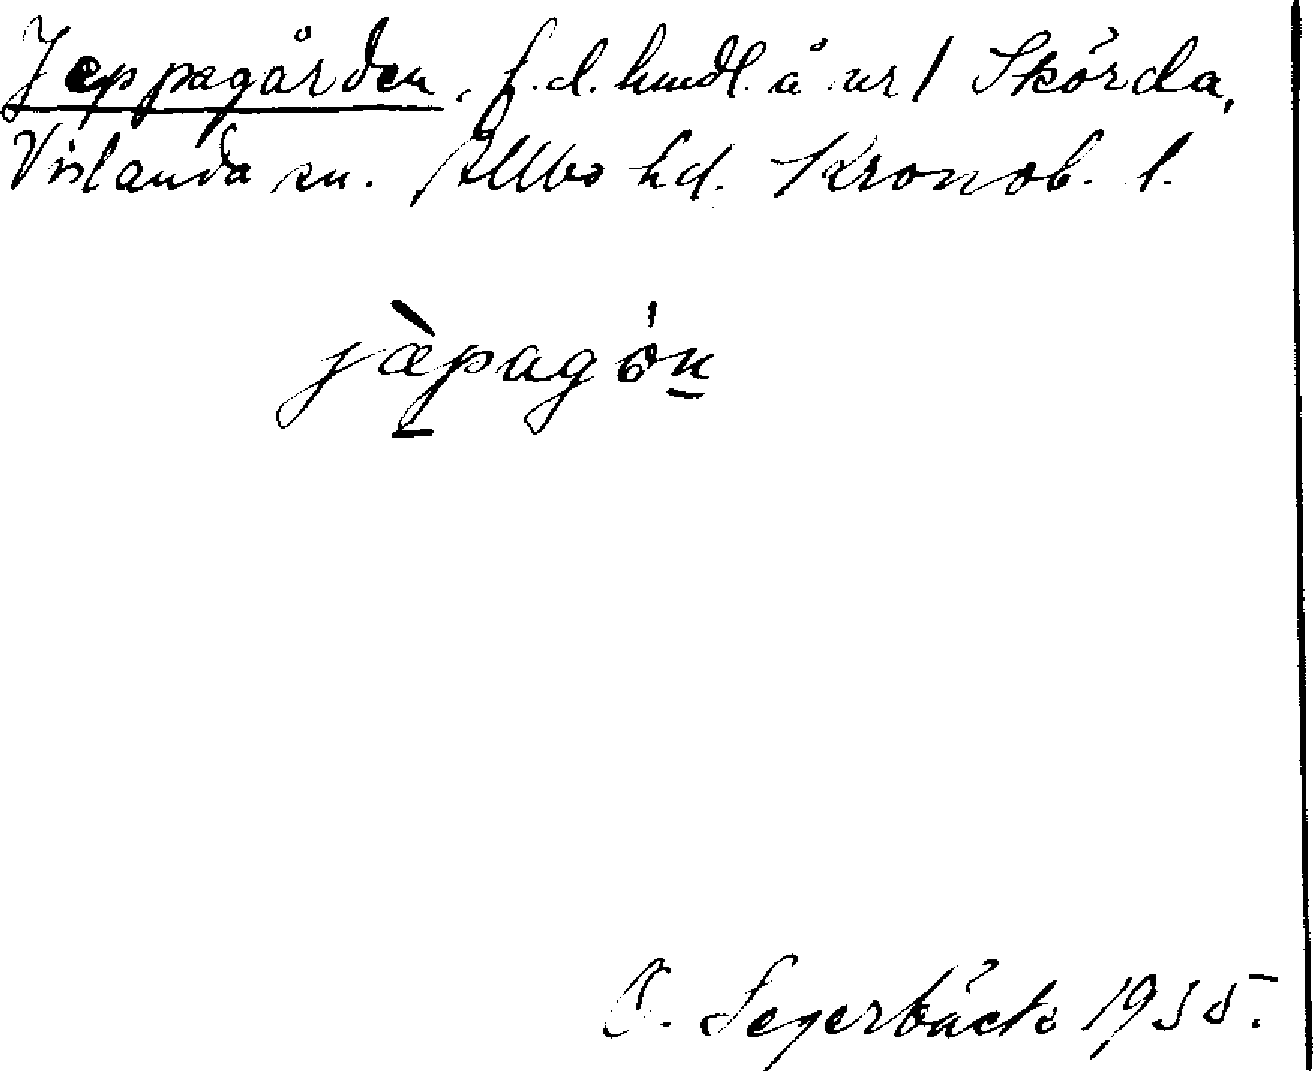 Jeppagården, f.d. hmdl. å nr 1 Skörda,
Vislanda sn. Allbo hd. Kronob. l.
jæ̀pagón
O. Segerbäck 1935.